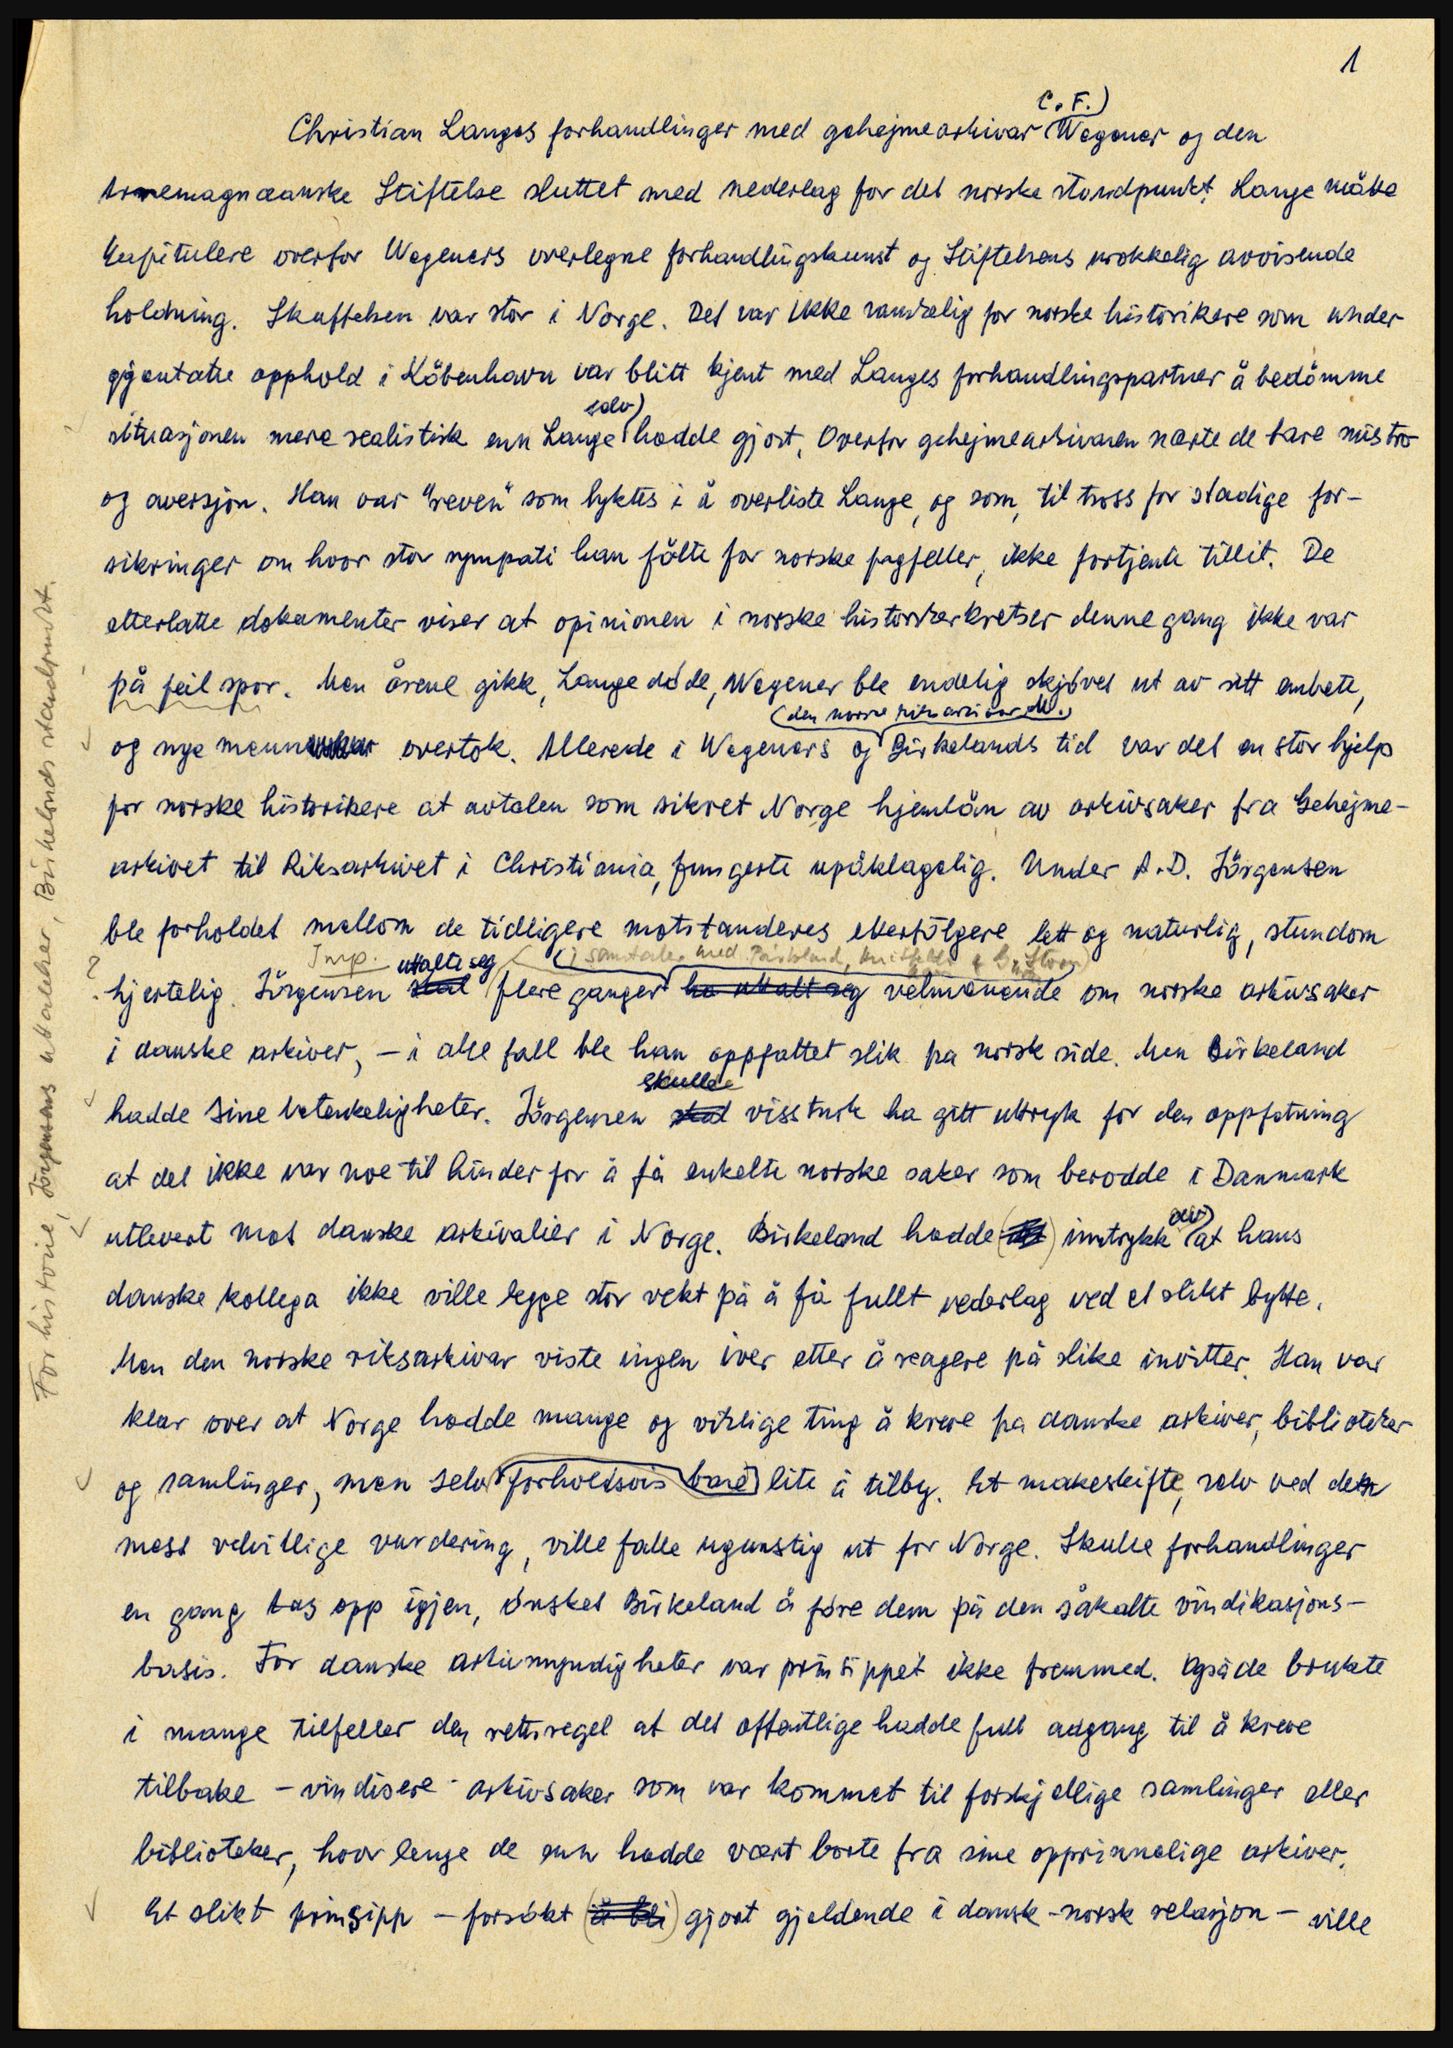 1
C. F.)
Christian Langes forhandlinger med gehejmearkivar (Wegener og den
Arnemagnæanske Stiftelse sluttet med nederlag for det norske standpunkt. Lange måtte
kapitulere overfor Wegeners overlegne forhandlingskunst og Stiftelsens urokkelig avvisende
holdning. Skuffelsen var stor i Norge. Det var ikke vanskelig for norske historikere som under
gjentatte opphold i København var blitt kjent med Langes forhandlingspartner å bedømme
selv)
situasjonen mere realistisk enn Lange hadde gjort. Overfor gehejmearkivaren nærte de bare mistro
og aversjon. Han var "reven" som lyktes i å overliste Lange, og som, til tross for stadige for-
sikringer om hvor stor sympati han følte for norske fagfeller, ikke fortjente tillit. De
etterlatte dokumenter viser at opinionen i norske historikerkretser denne gang ikke var
på feil spor. Men årene gikk, Lange døde, Wegener ble endelig skjøvet ut av sitt embete,
(den norske riksarkivar M.)
og nye menn overtok. Allerede i Wegeners og Birkelands tid var det en stor hjelp
for norske historikere at avtalen som sikret Norge hjemlån av arkivsaker fra Gehejme-
arkivet til Riksarkivet i Christiania, fungerte upåklagelig. Under A.D. Jörgensen
ble forholdet mellom de tidligere motstanderes etterfölgere lett og naturlig, stundom
Imp. uttalte seg (i samtaler med Birkeland, Huitfeldt & G. Storm)
? hjertelig. Jörgensen skal flere ganger ha uttalt seg velmenende om norske arkivsaker
i danske arkiver, – i alle fall ble han oppfattet slik på norsk side. Men Birkeland
skulle
hadde sine betenkeligheter. Jörgensen skal visstnok ha gitt uttrykk for den oppfatning
at det ikke var noe til hinder for å få enkelte norske saker som berodde i Danmark
av)
utlevert mot danske arkivalier i Norge. Birkeland hadde inntrykk at hans
danske kollega ikke ville legge stor vekt på å få fullt vederlag ved et slikt bytte.
Men den norske riksarkivar viste ingen iver etter å reagere på slike invitter. Han var
klar over at Norge hadde mange og viktige ting å kreve fra danske arkiver, biblioteker
og samlinger, men selv forholdsvis bare lite å tilby. Et makeskifte, selv ved den
mest velvillige vurdering, ville falle ugunstig ut for Norge. Skulle forhandlinger
en gang tas opp igjen, ønsket Birkeland å føre dem på den såkalte vindikasjons-
basis. For danske arkivmyndigheter var prinsippet ikke fremmed. Også de brukte
i mange tilfeller den rettsregel at det offentlige hadde full adgang til å kreve
tilbake – vindisere – arkivsaker som var kommet til forskjellige samlinger eller
biblioteker, hvor lenge de enn hadde vært borte fra sine opprinnelige arkiver.
Et slikt prinsipp – forsøkt (å bli) gjort gjeldende i dansk-norsk relasjon – ville
Forhistorie, Jörgensens uttalelser, Birkelands standpunkt.